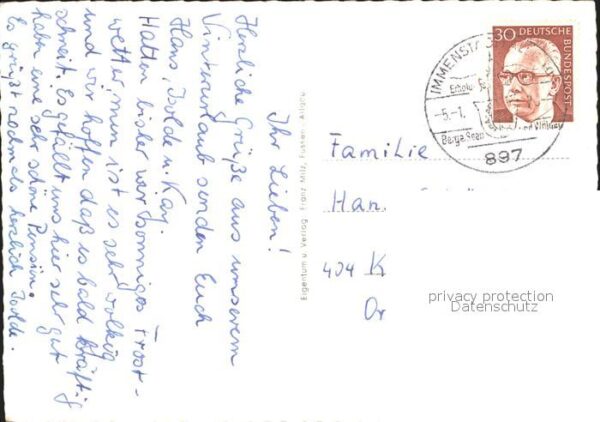 Ihr Lieben!
Herzliche Grüße aus unserem
Winterurlaub senden Euch
Hans, Isolde u. Kay.
Hatten bisher nur sonniges Frost-
wetter, nun ist es sehr wolkig
und wir hoffen daß es bald kräftig
schneit. Es gefällt uns hier sehr gut
haben eine sehr schöne Pension.
Es grüßt nochmals herzlich Isolde.
Eigentum u. Verlag Franz Milz, Füssen - Allgäu
30 DEUTSCHE
BUNDESPOST
IMMENST
Erholu
-5.-1.
Berge Seen
897
Familie
Han.
404 K
Or
privacy protection
Datenschutz